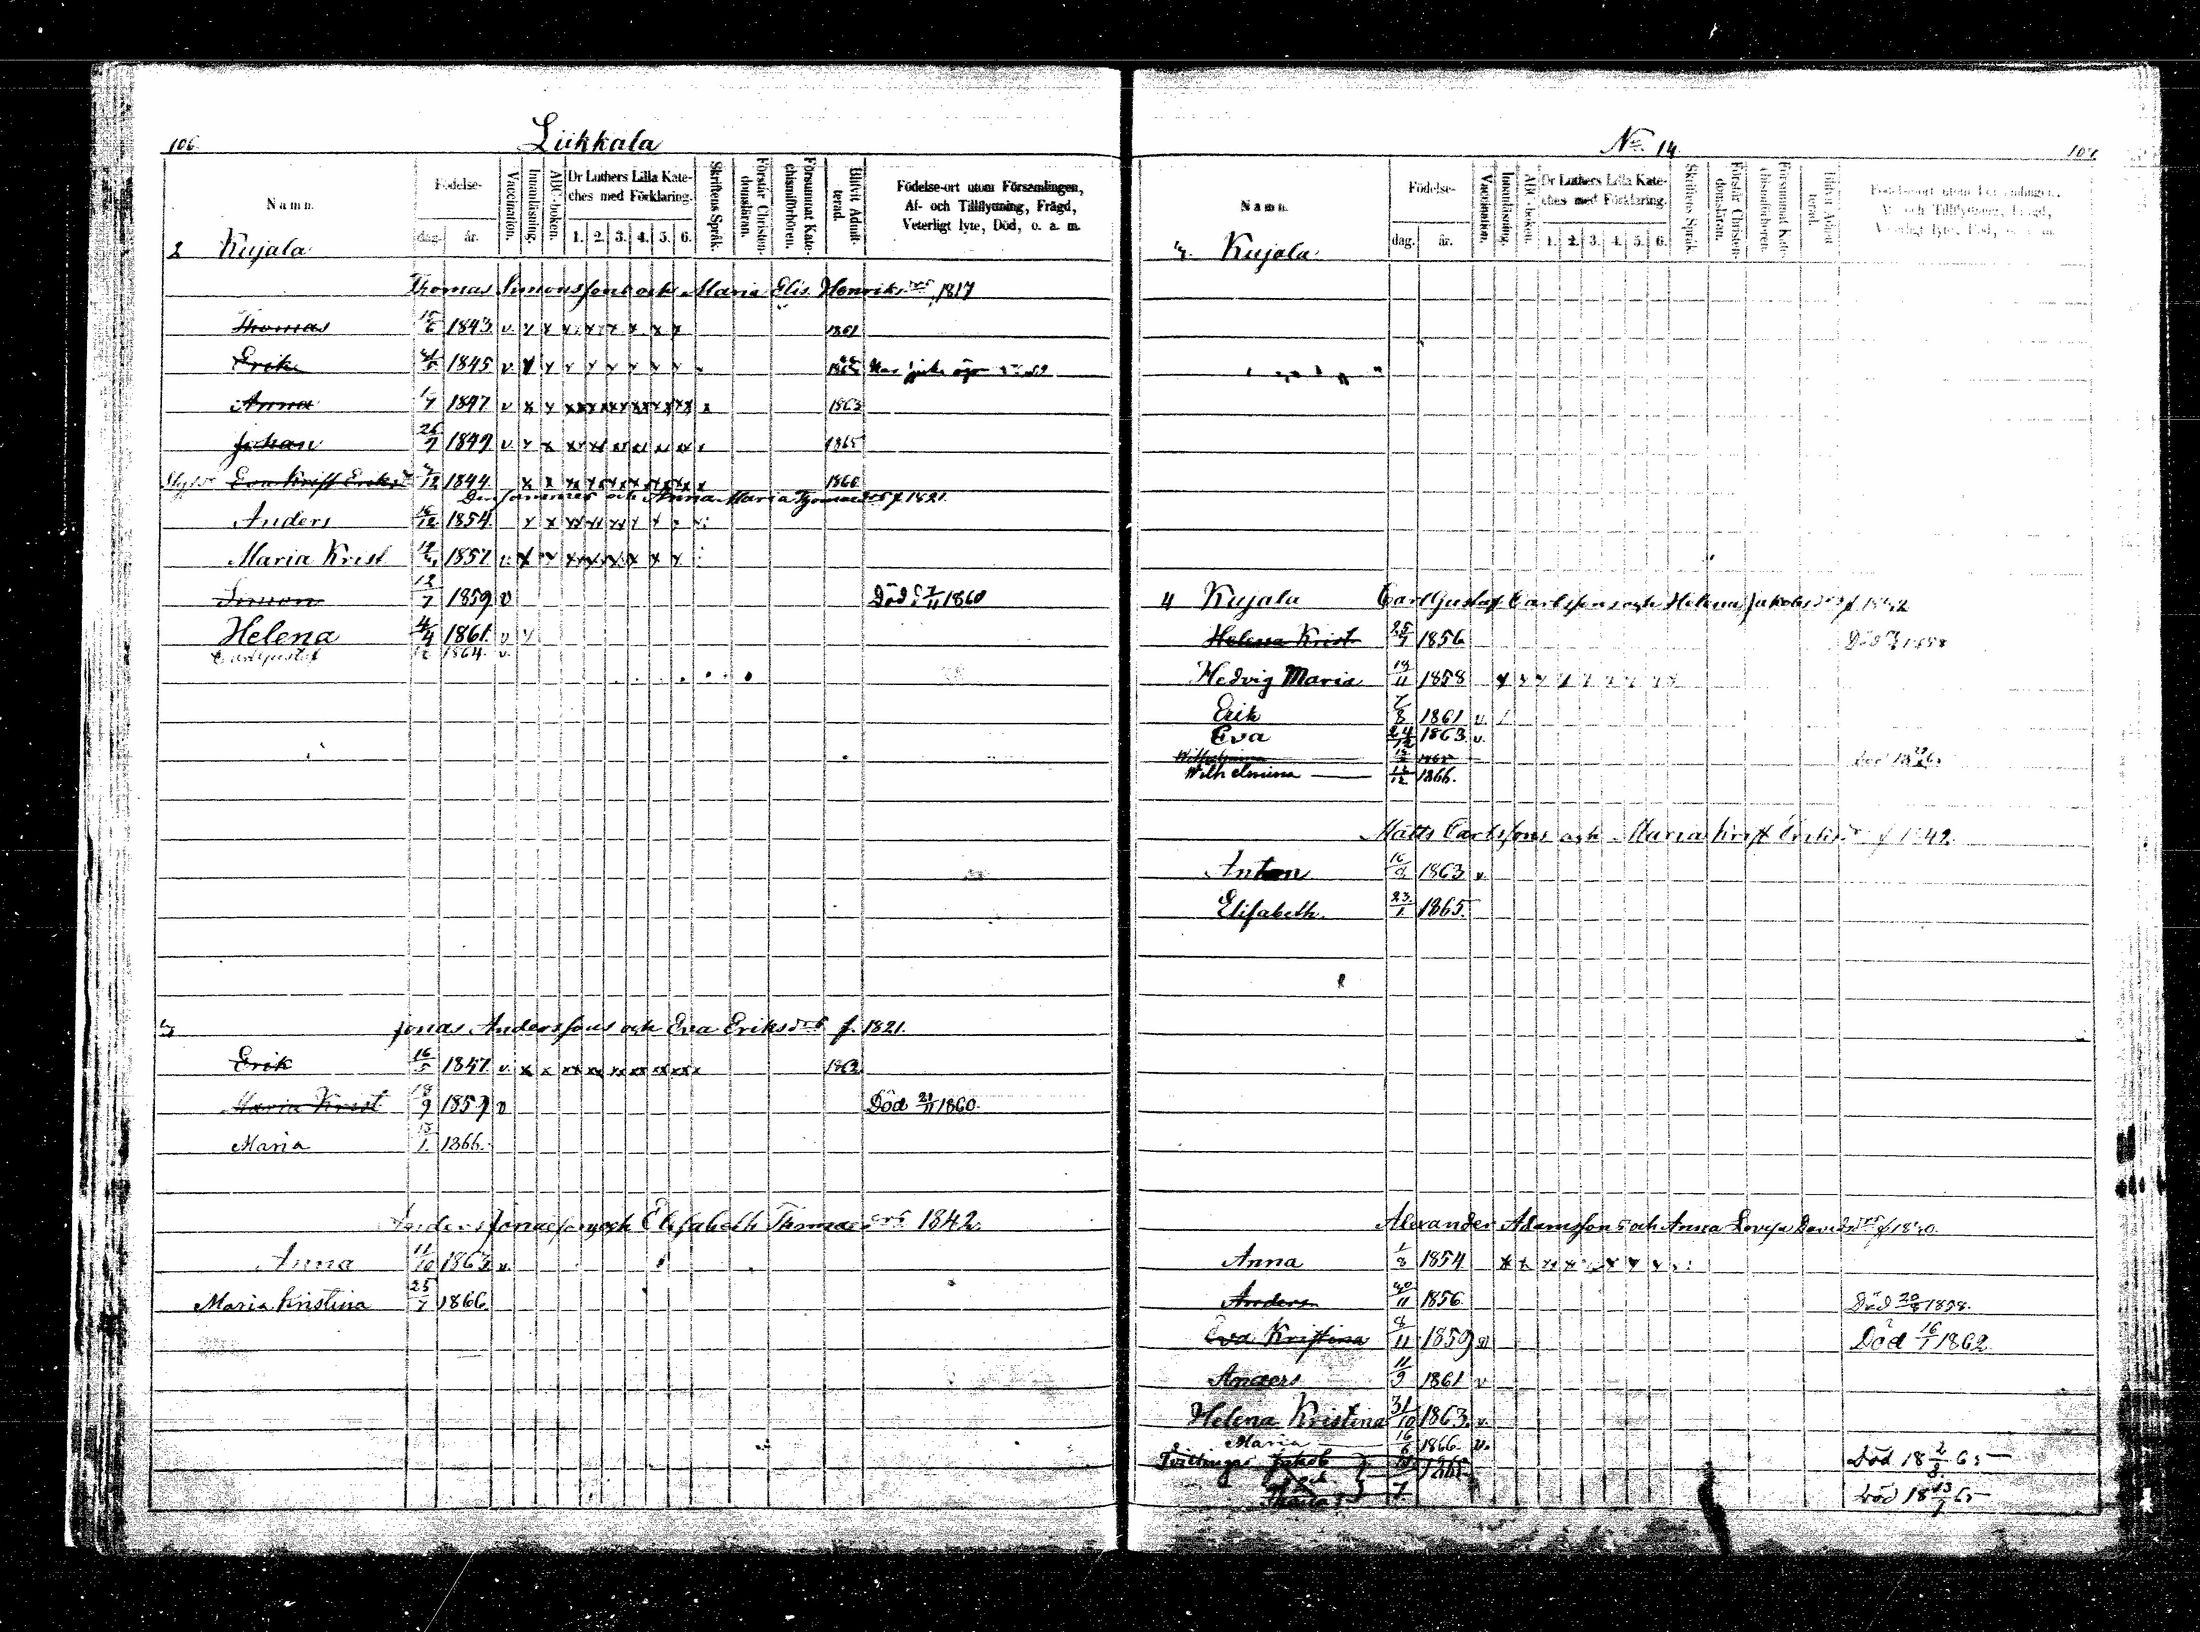 106.
Liikkala
Namn.
Födelse-
dag. år.
Vaccination.
Innanläsning.
ABC-boken.
Dr Luthers Lilla Kateches med Förklaring.
1. 2. 3. 4. 5. 6.
Skriftens Språk.
Förstår Christendomsläran.
Försummat Katechismiförhören.
Blifvit Admitterad.
Födelse-ort utom Församlingen,
Af- och Tillflyttning, Frägd,
Veterligt lyte, Död, o. a. m.
2 Kujala
Thomas Simonssons och Maria Elis. Henriksdrs 1817
Thomas 15/6 1843 v x x x x x x x x 1861
Erik 1845 v x x x x x x x x
Anna 1/7 1847 v x x xx xx xx xx xx xx x 1863
Johan 26/7 1849 v x x xx xx xx xx xx xx x 1865
Eva Krist Eriksd 1844 x x x x x x x x x 1860
Densammes och Anna Maria Thomaedrs f. 1821.
Anders 16/12 1854 x x xx xx xx x x x
Maria Krist 1857 v x x xx xx xx x x x
Simon 12/7 1859 v Död 7/11 1860
Helena 4/4 1861. v x
Carl Gustaf 1864. v.
3 Jonas Anderssons och Eva Eriksdrs f. 1821.
Erik 16/5 1847 v. x x xx xx xx xx xx xx 1862
Maria Krist 18/9 1859 v Död 21/11 1860.
Maria 1866.
Anders Jonaesons och Elisabeth Thomaedrs 1842.
Anna 11/10 1863 v.
Maria Kristina 25/7 1866
No. 14.
107
Namn.
Födelse-
dag. år.
Vaccination.
Innanläsning.
ABC-boken.
Dr Luthers Lilla Kateches med Förklaring.
1. 2. 3. 4. 5. 6.
Skriftens Språk.
Förstår Christendomsläran.
Försummat Katechismiförhören.
Blifvit Admitterad.
Födelse-ort utom Församlingen,
Af- och Tillflyttning, Frägd,
Veterligt lyte, Död, o. a. m.
Kujala
4 Kujala Carl Gustaf Carlssons och Helena Jakobsdrs f.
Helena Krist 25/7 1856 Död 1858
Hedvig Maria 1858 x x x x x x x x
Erik 7/8 1861 v.
Eva 24/12 1863. v.
Wilhelmina
Wilhelmina 1866.
Matts Carlssons och Maria Krist Eriksdrs f 1842.
Anton 1863 v.
Elisabeth. 23/1 1865.
Alexander Adamssons och Anna Lovisa Davidsdrs f
Anna 1/8 1854 x x x x x x x x
Anders 1856. Död 1858.
Eva Kristina 8/11 1859 v Död 16/1 1862.
Anders 11/9 1861 v
Helena Kristina 31/10 1863. v.
Maria 16/6 1866. v.
Tvillingar Jakob 1865 Död 18 2/8 65
och
Död 18 13/7 65